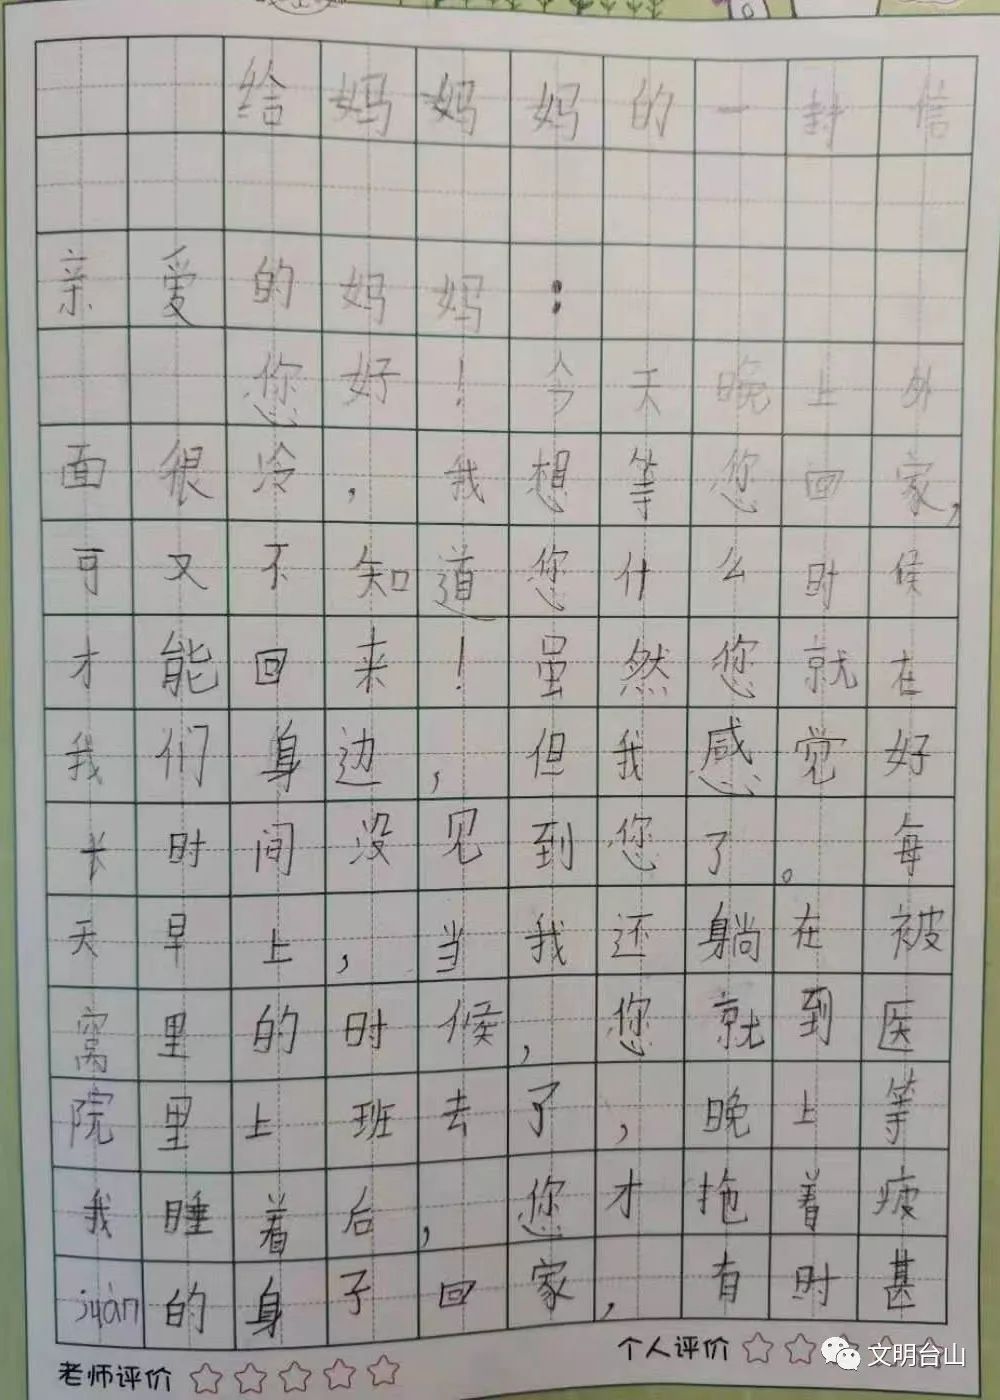 给妈妈妈的一封信
亲爱的妈妈：
您好！今天晚上外
面很冷，我想等您回家，
可又不知道您什么时候
才能回来！虽然您就在
我们身边，但我感觉好
长时间没见到您了。每
天早上，当我还躺在被
窝里的时候，您就到医
院里上班去了，晚上等
我睡着后，您才拖着疲
juàn的身子回家，有时甚
个人评价
老师评价
文明台山